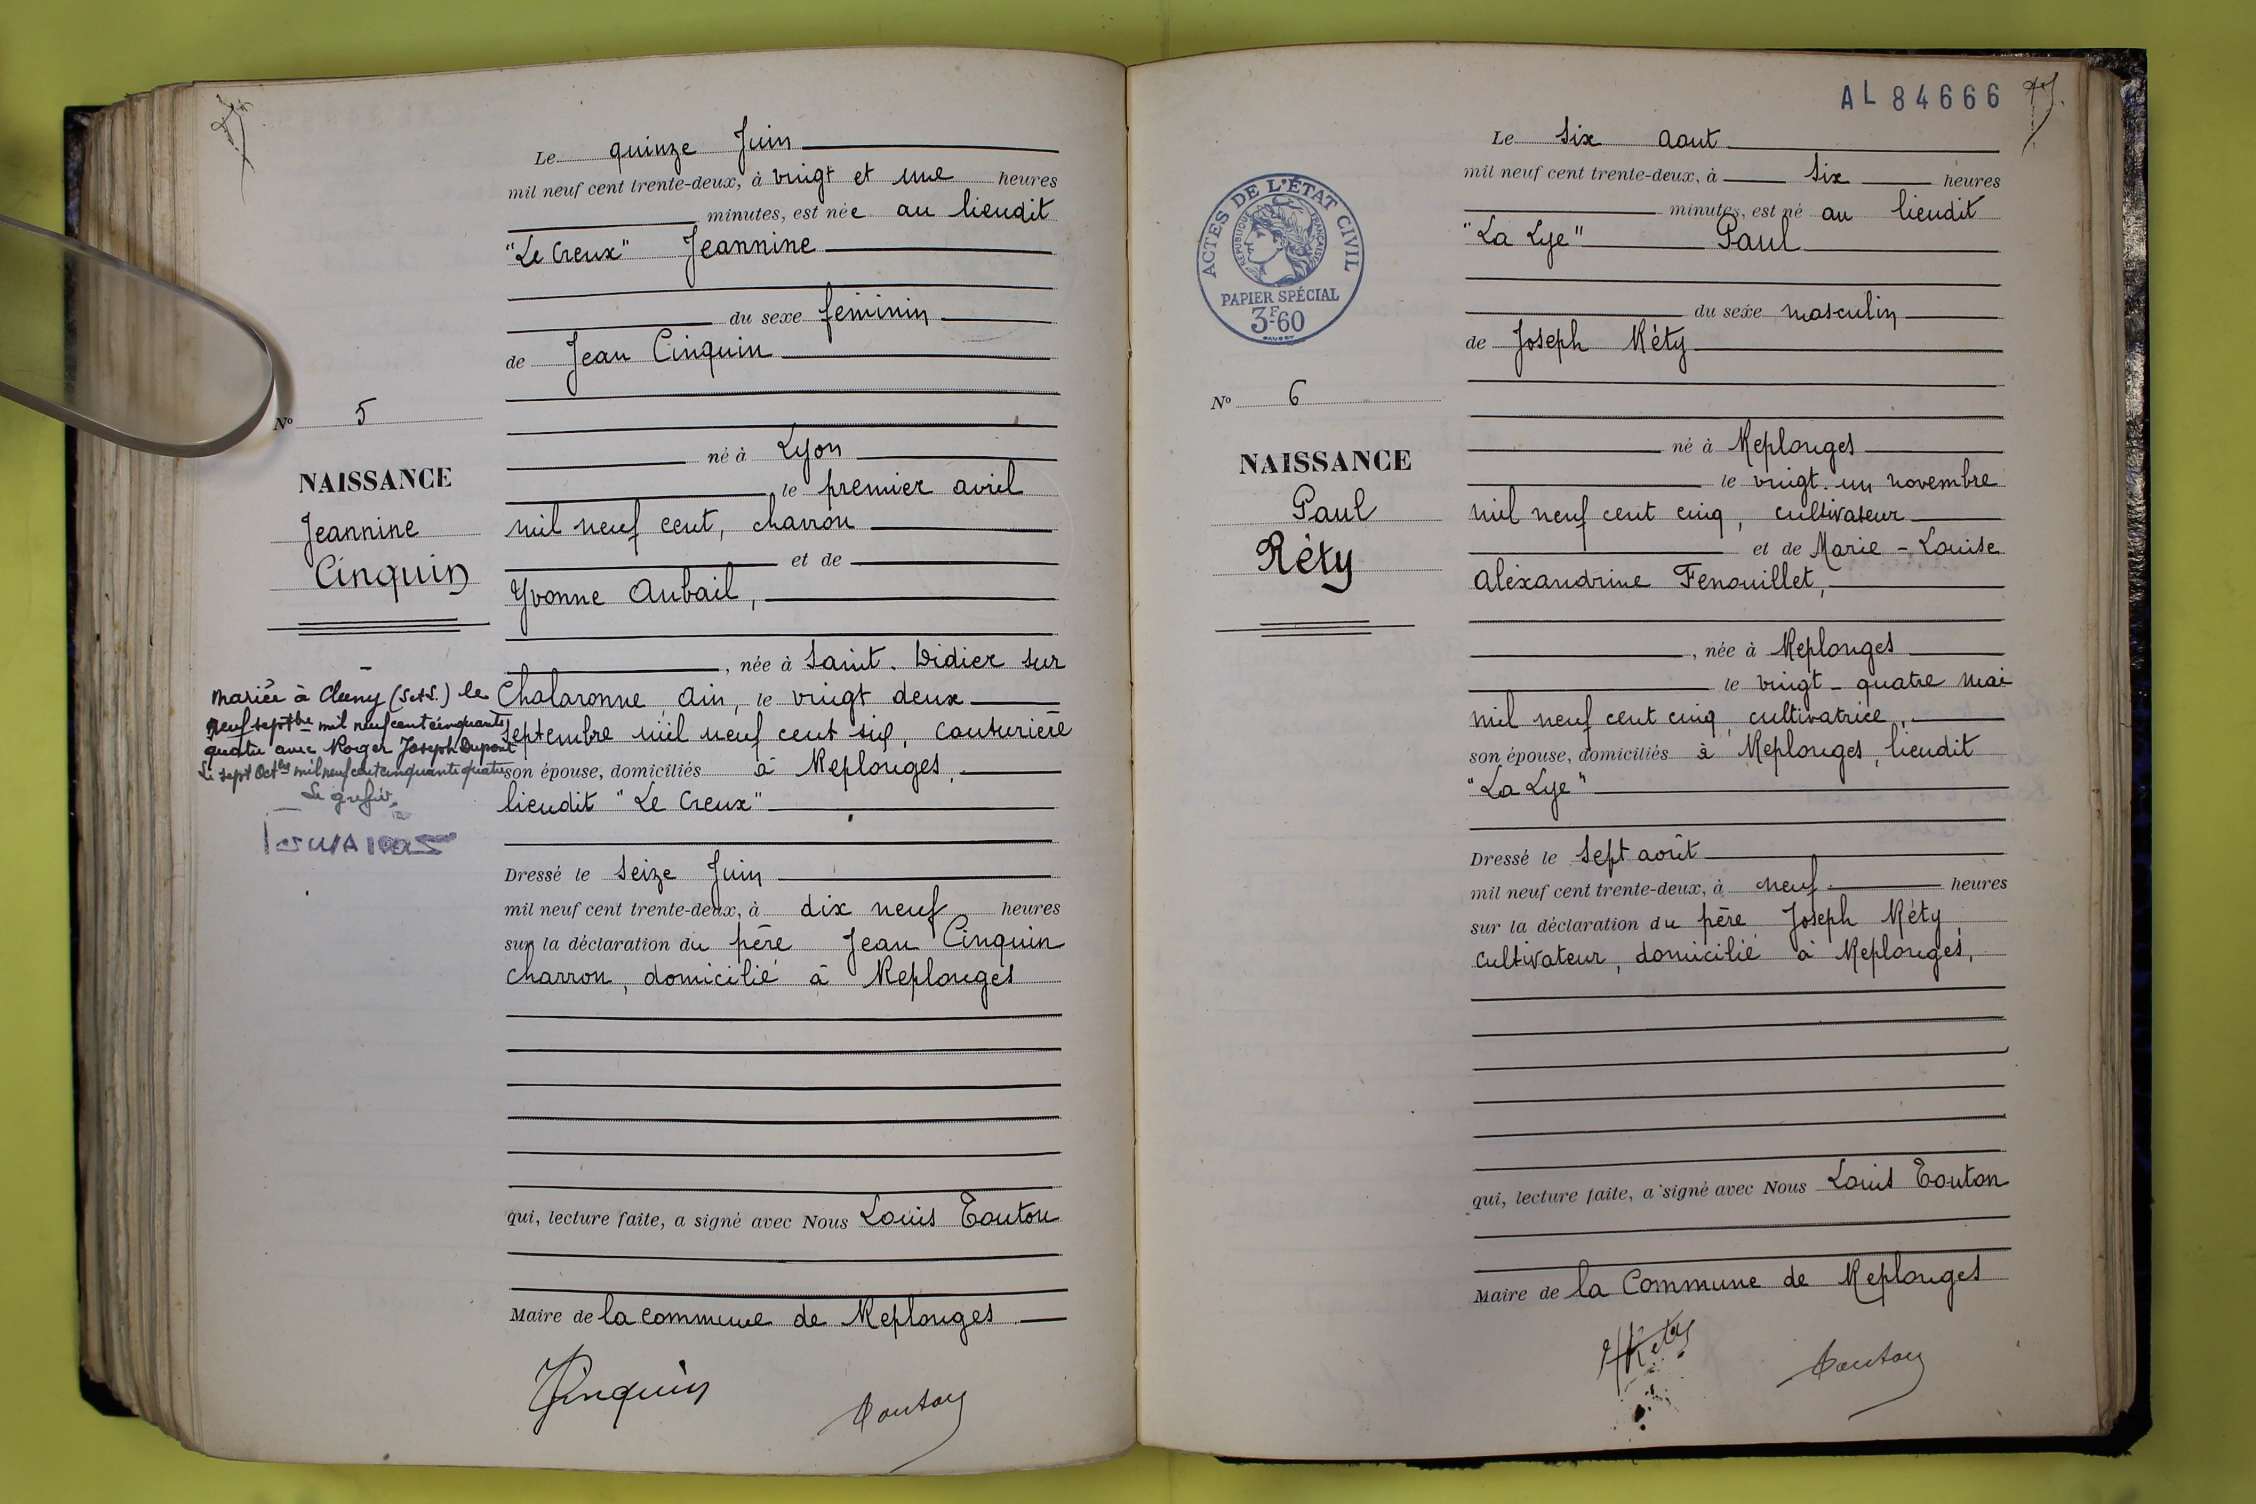 Le quinze Juin
mil neuf cent trente-deux, à vingt et une heures
minutes, est née au lieudit
"Le Creux" Jeannine
du sexe féminin
de Jean Cinquin
né à Lyon
le premier avril
mil neuf cent, charron
et de
Yvonne Aubail,
, née à Saint-Didier sur
Chalaronne, Ain, le vingt deux
septembre mil neuf cent six, couturière
son épouse, domiciliés à Replonges,
lieudit "Le Creux"
Dressé le seize Juin
mil neuf cent trente-deux, à dix neuf heures
sur la déclaration du père Jean Cinquin
charron, domicilié à Replonges
qui, lecture faite, a signé avec Nous Louis Touton
Maire de la commune de Replonges
Cinquin
Touton
No 5
NAISSANCE
Jeannine
Cinquin
Mariée à Cluny (S et S.) le
neuf septbre mil neuf cent cinquante
quatre avec Roger Joseph Dupont
Le sept Octbre mil neuf cent cinquante quatre
Le greffier,
AL 84666
Le six Aout
mil neuf cent trente-deux, à six heures
minutes, est né au lieudit
"La Lye" Paul
du sexe masculin
de Joseph Réty
né à Replonges
le vingt-un novembre
mil neuf cent cinq, cultivateur
et de Marie-Louise
Aléxandrine Fenouillet,
, née à Replonges
le vingt-quatre mai
mil neuf cent cinq, cultivatrice,
son épouse, domiciliés à Replonges, lieudit
"La Lye"
Dressé le sept août
mil neuf cent trente-deux, à neuf heures
sur la déclaration du père Joseph Réty,
cultivateur, domicilié à Replonges,
qui, lecture faite, a signé avec Nous Louis Touton
Maire de la Commune de Replonges
Réty
Touton
ACTES DE L'ÉTAT CIVIL
RÉPUBLIQUE FRANÇAISE
PAPIER SPÉCIAL
3F60
No 6
NAISSANCE
Paul
Réty